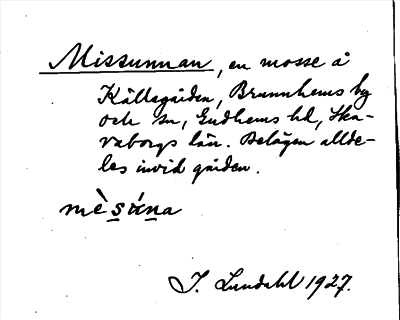 Missunnan, en mosse å
Källegården, Brunnhems by
och sn, Gudhems hd, Ska-
raborgs län. Belägen allde-
les invid gården.
mèsúna
I. Lundahl 1927.